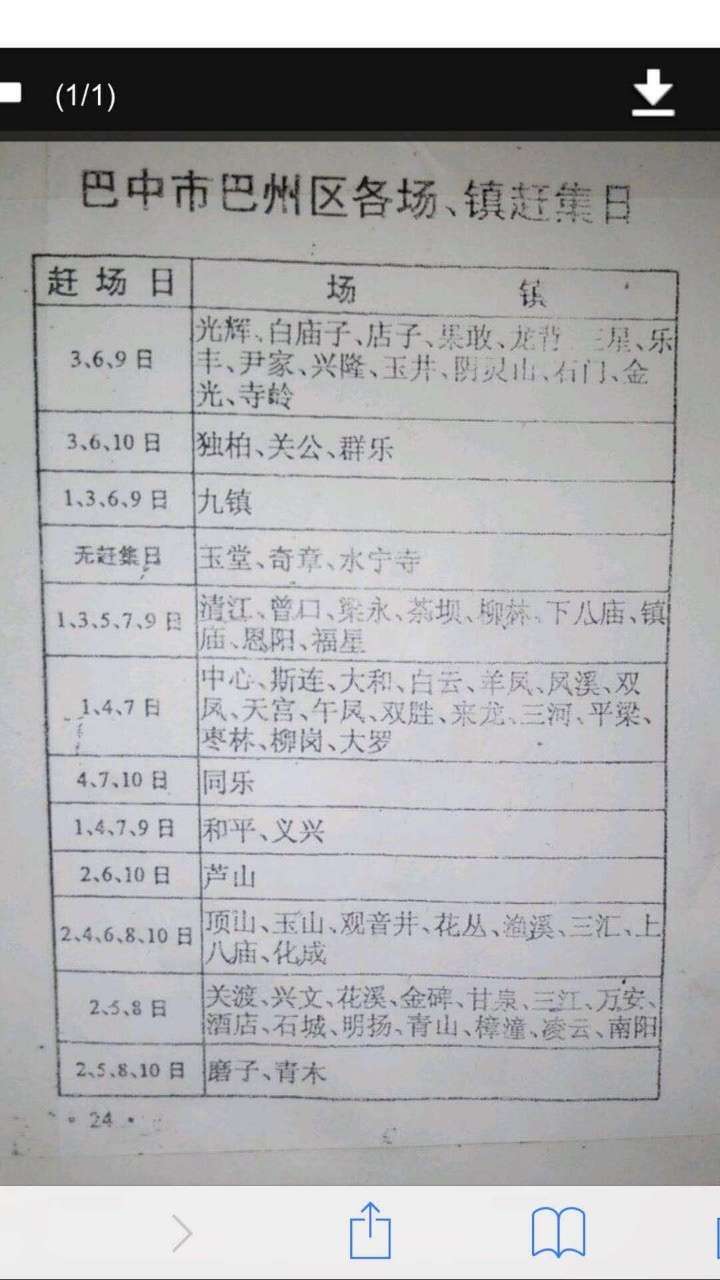 (1/1)
巴中市巴州区各场、镇赶集日
赶 场 日 场 镇
3、6、9 日 光辉、白庙子、店子、果敢、龙背、三星、乐
丰、尹家、兴隆、玉井、阴灵山、石门、金
光、寺岭
3、6、10 日 独柏、关公、群乐
1、3、6、9 日 九镇
无赶集日 玉堂、奇章、水宁寺
1、3、5、7、9 日 清江、曾口、梁永、茶坝、柳林、下八庙、镇
庙、恩阳、福星
1、4、7 日 中心、斯连、大和、白云、羊凤、凤溪、双
凤、天宫、午凤、双胜、来龙、三河、平梁、
枣林、柳岗、大罗
4、7、10 日 同乐
1、4、7、9 日 和平、义兴
2、6、10 日 芦山
2、4、6、8、10 日 顶山、玉山、观音井、花丛、渔溪、三汇、上
八庙、化成
2、5、8 日 关渡、兴文、花溪、金碑、甘泉、三江、万安、
酒店、石城、明扬、青山、樟潼、凌云、南阳
2、5、8、10 日 磨子、青木
· 24 ·